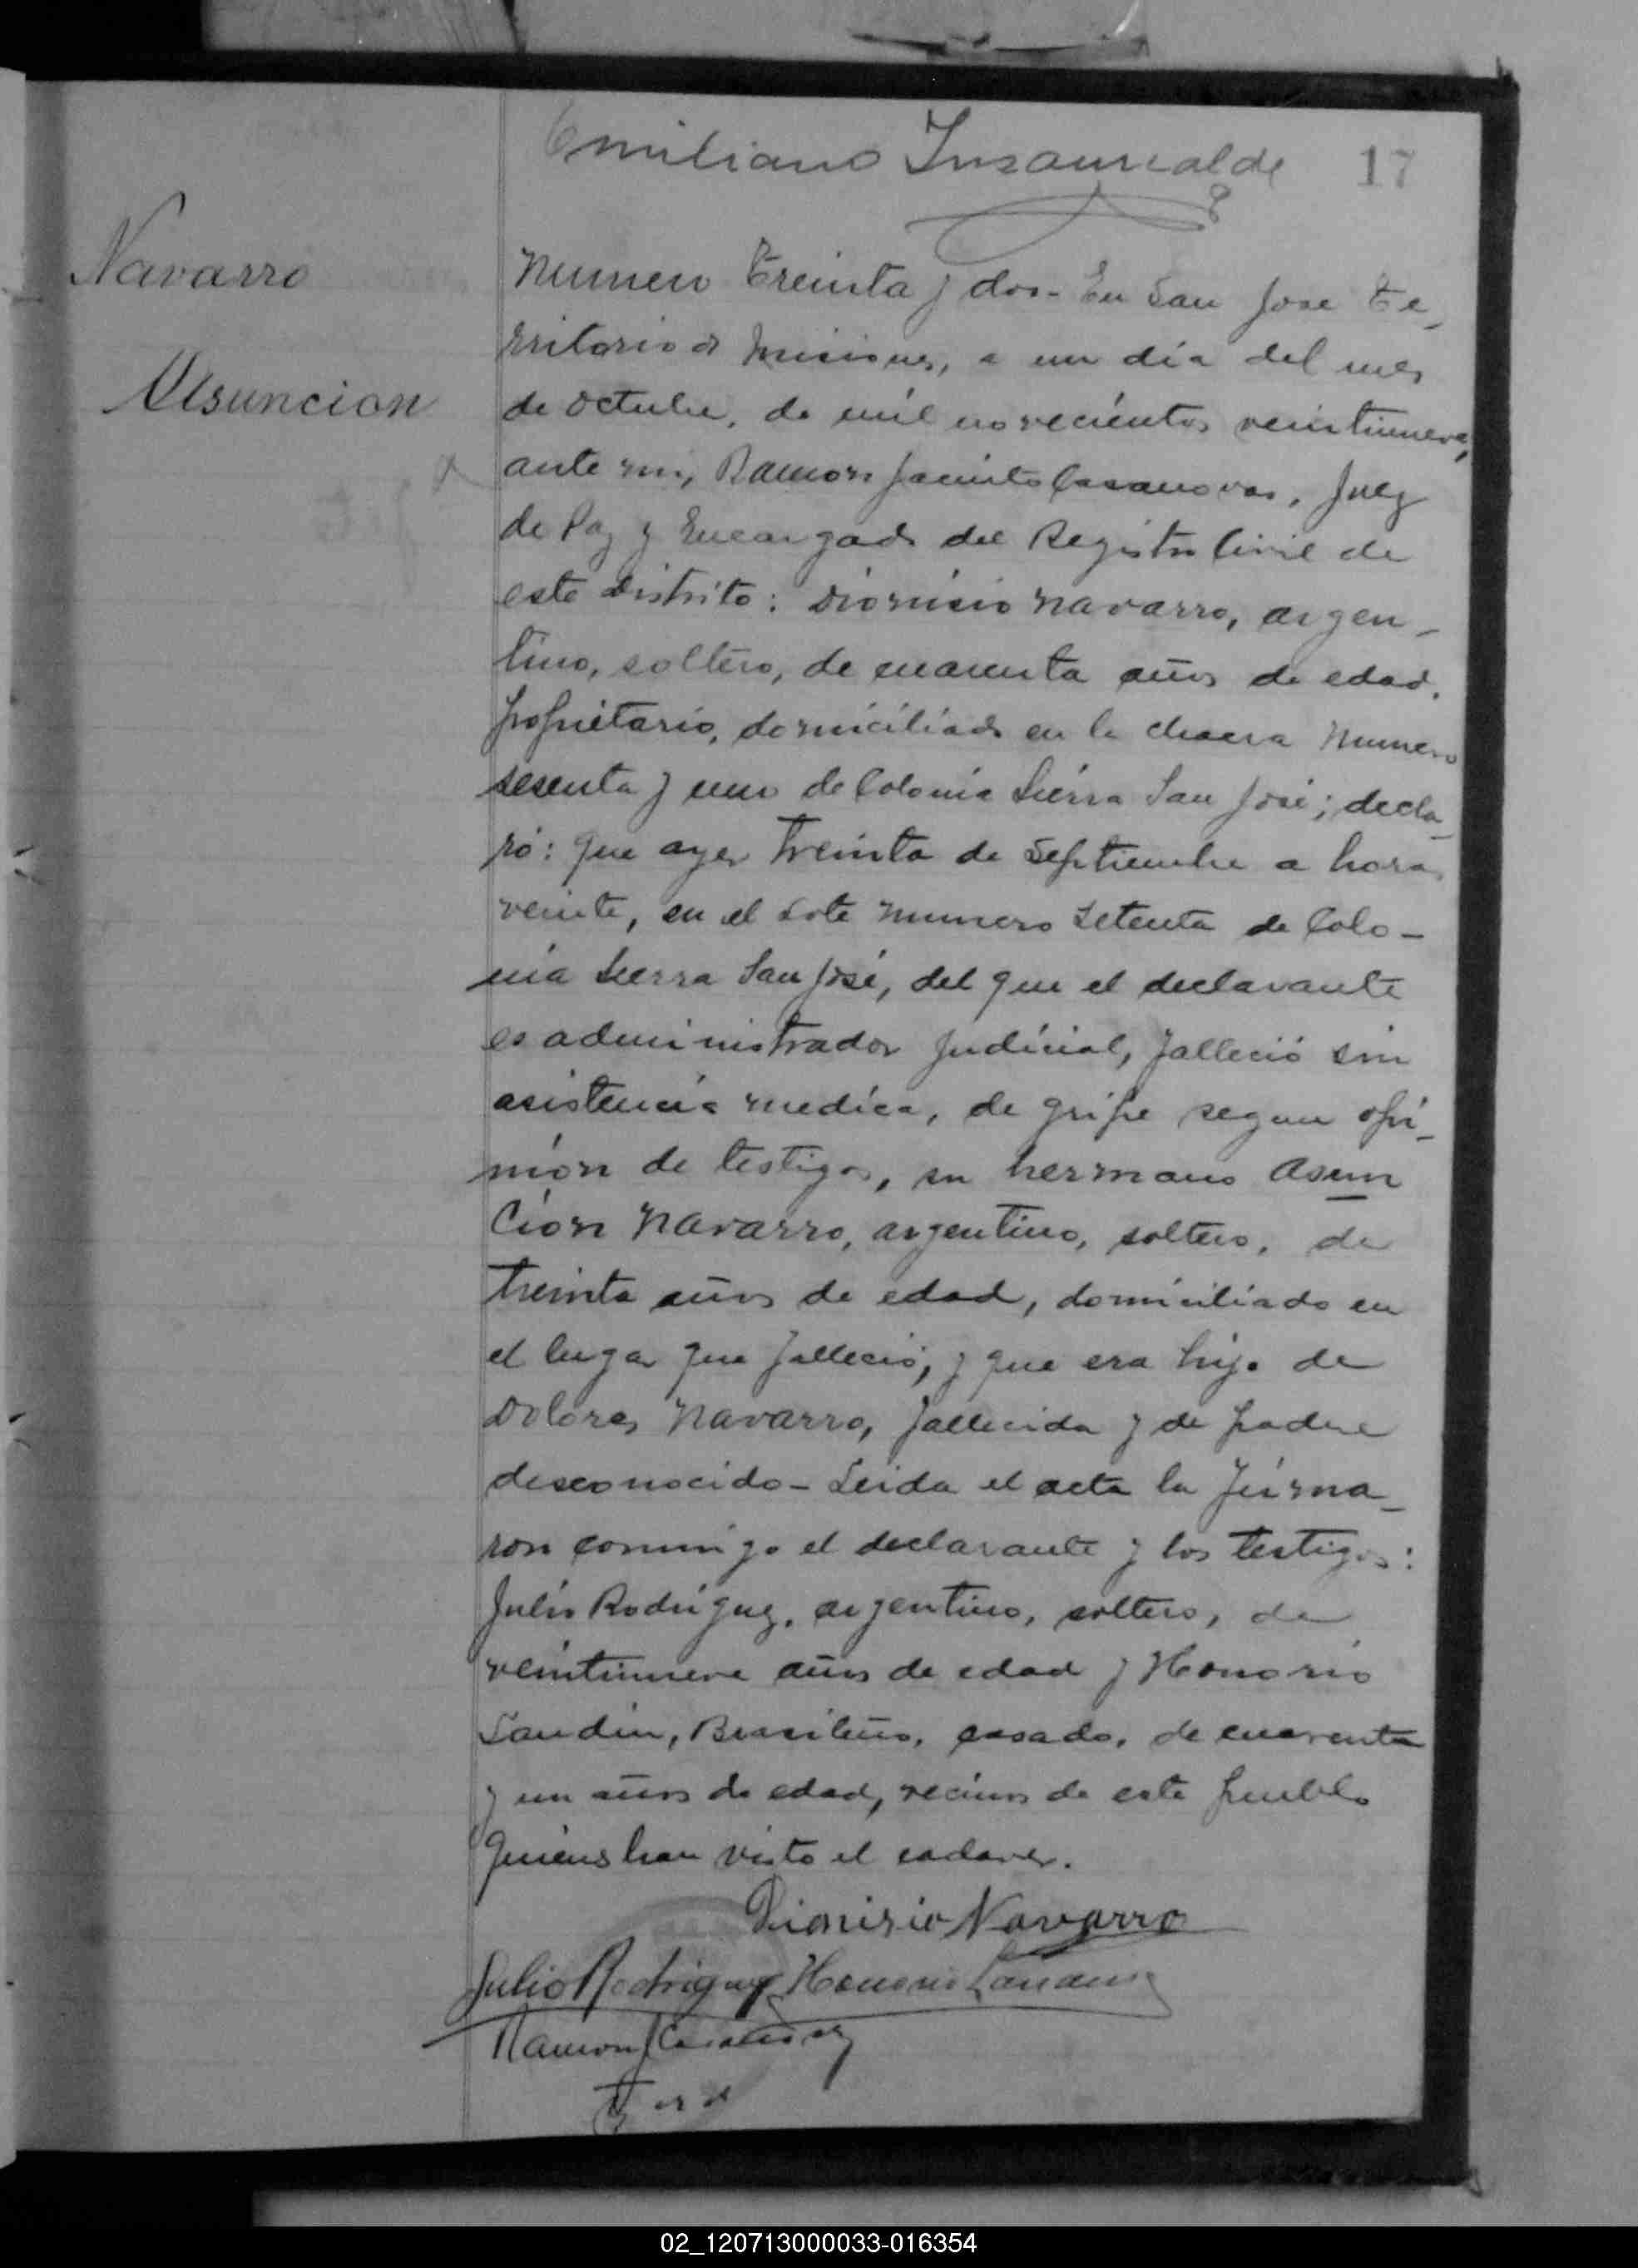 Emiliano Insaurralde 17
Navarro
Asuncion
Numero treinta y dos - En San Jose Te_
rritorio de Misiones, a un día del mes
de octubre, de mil novecientos veintinueve,
ante mi, Ramon Jacinto Casanovas, Juez
de Paz y Encargado del Registro Civil de
este distrito: Dionisio Navarro, argen_
tino, soltero, de cuarenta años de edad,
propietario, domiciliado en la chacra numero
sesenta y uno de Colonia Sierra San José; decla_
ró: que ayer treinta de Septiembre a horas
veinte, en el Lote numero setenta de Colo-
nia Sierra San José, del que el declarante
es administrador judicial, falleció sin
asistencia medica, de gripe segun opi_
nión de testigos, su hermano Asun
cion Navarro, argentino, soltero, de
treinta años de edad, domiciliado en
el lugar que falleció, y que era hijo de
Dolores Navarro, fallecida y de padre
desconocido - Leida el acta la firma_
ron conmigo el declarante y los testigos:
Julio Rodriguez, argentino, soltero, de
veintinueve años de edad y Honorio
Landin, Brasileño, casado, de cuarenta
y un años de edad, vecinos de este pueblo
quienes han visto el cadaver.
Dionisio Navarro
Julio Rodriguez Honorio Landin
Ramon J Casanovas
02_120713000033-016354